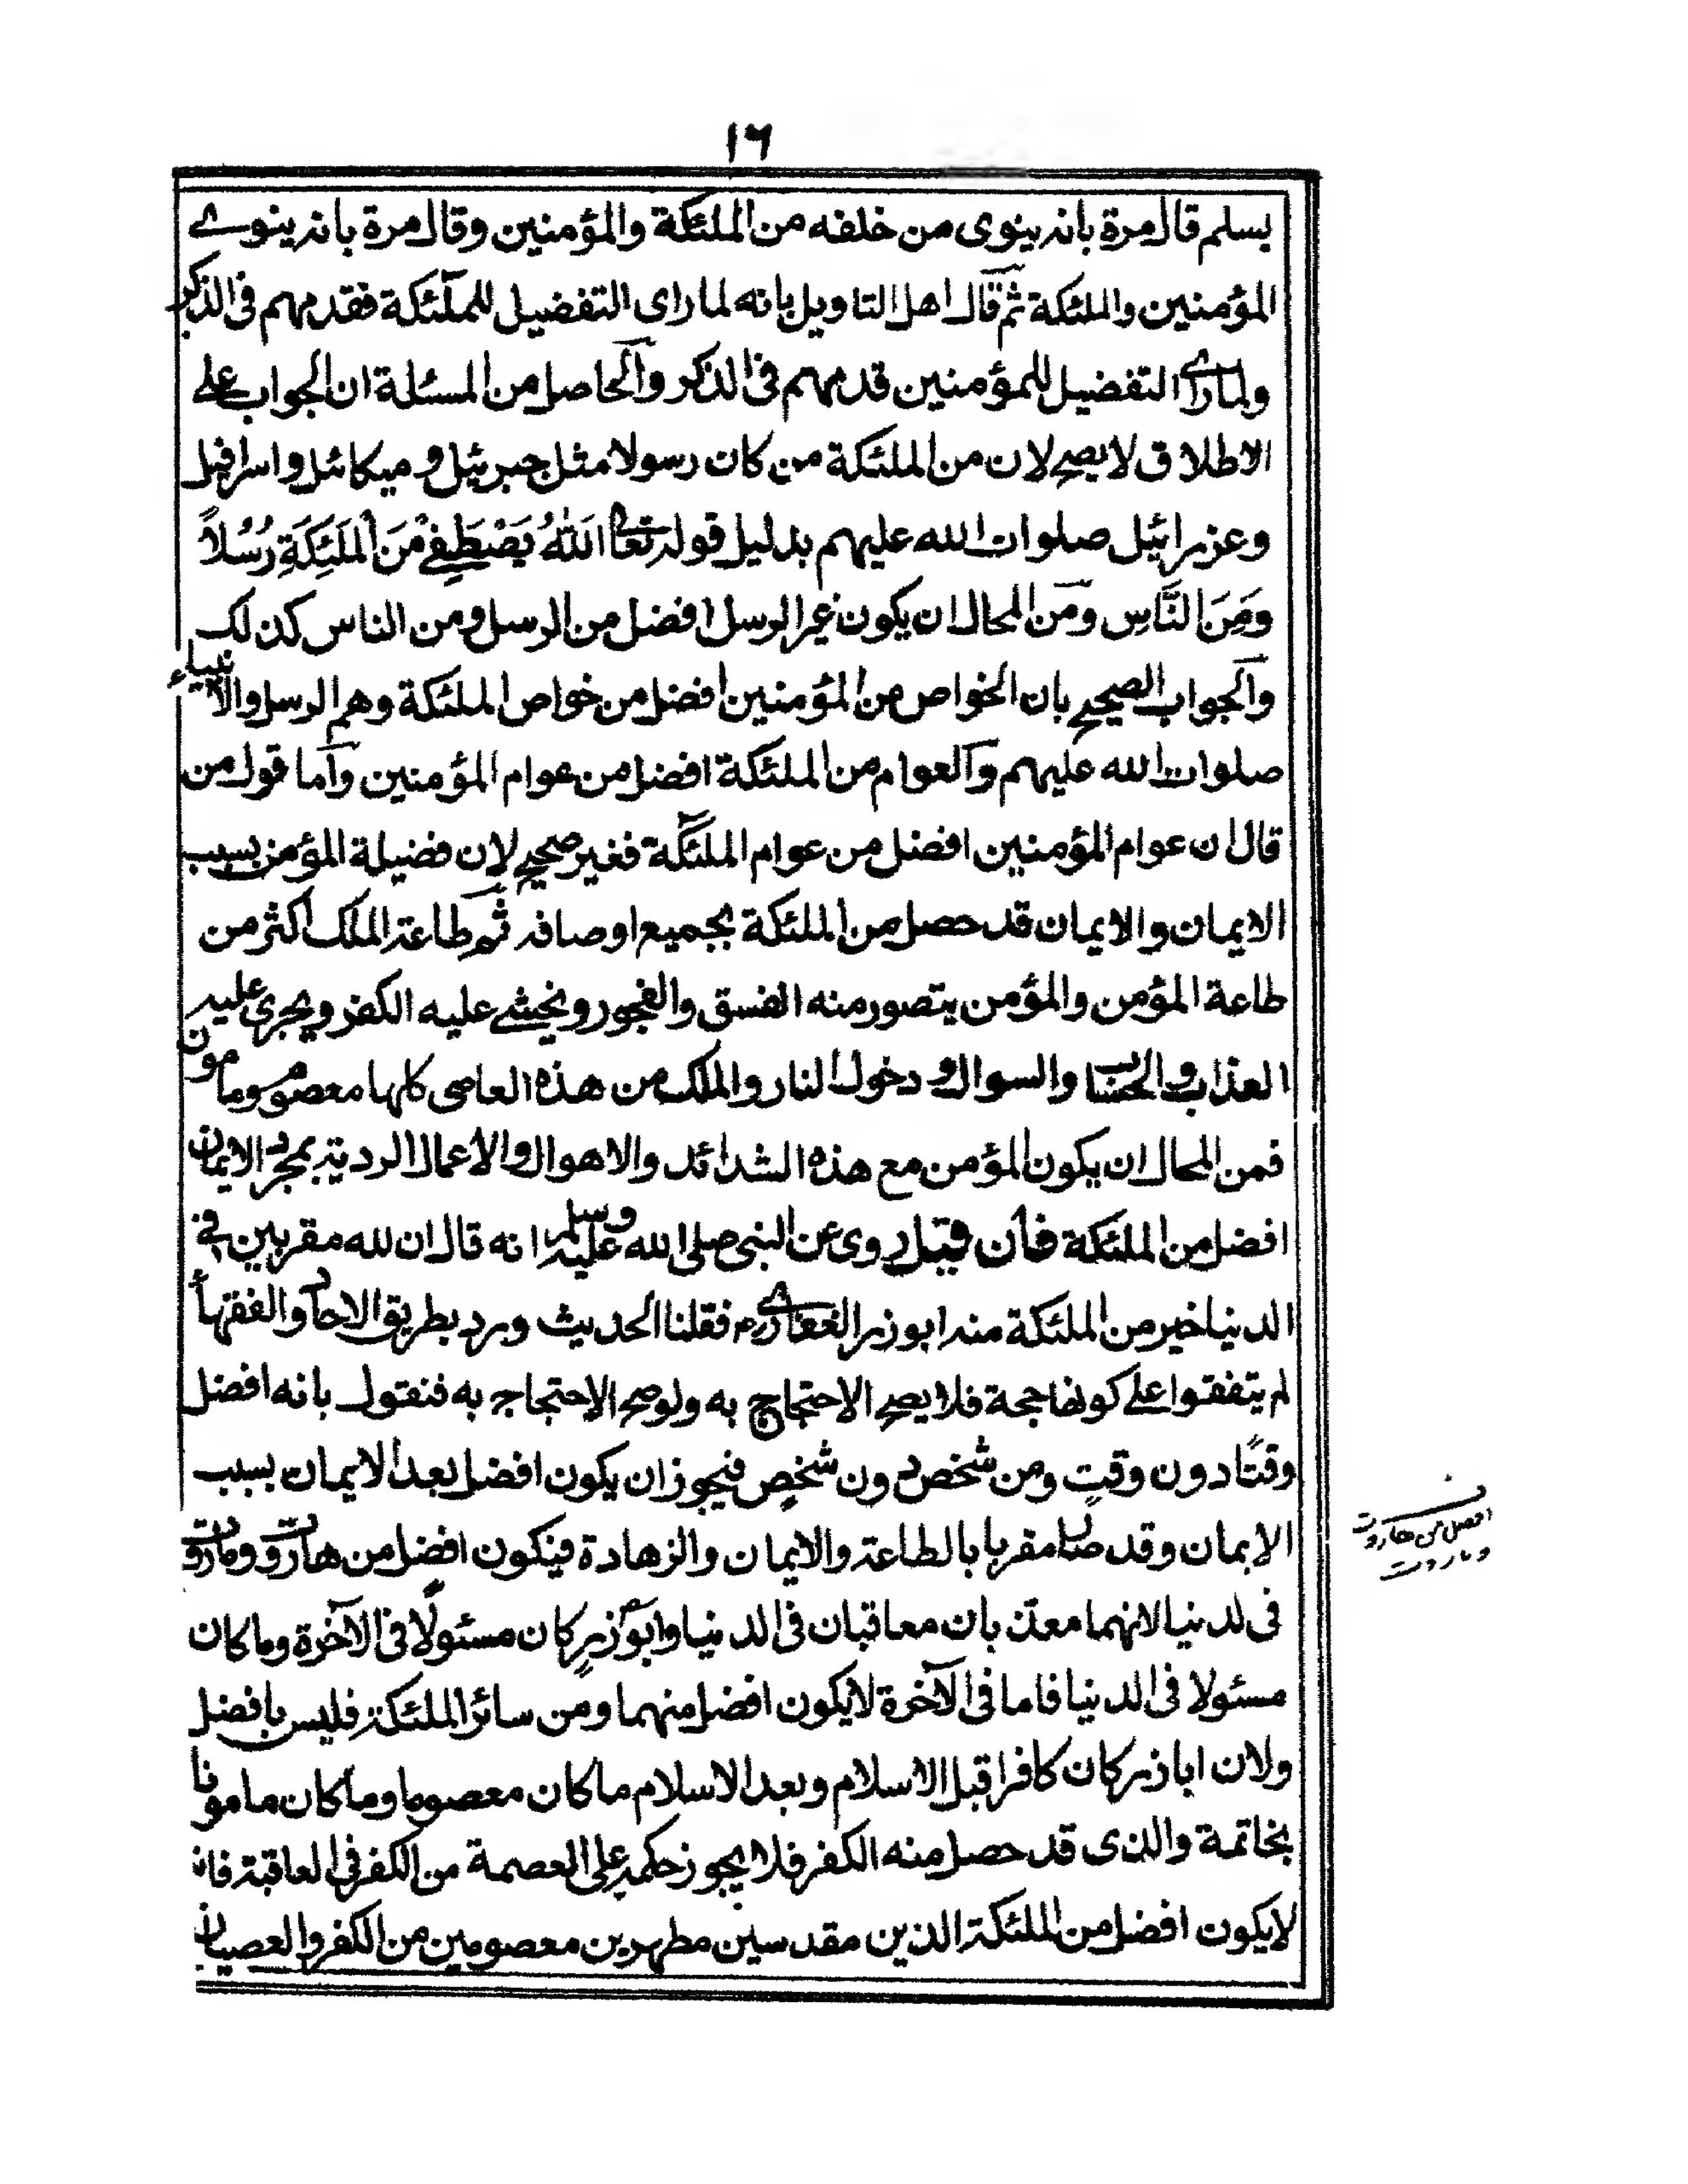 ١٦
بسلم قال مرة بانه ينوى من خلفه من الملئكة والمؤمنين وقال مرة بانه ينوے
المؤمنين والملئكة ثم قال اهل التاويل بانه لما راى التفضيل للملئكة فقدمهم فى الذكر
ولما راے التفضيل للمؤمنين قدمهم فى الذكر والحاصل من المسئلة ان الجواب علے
الاطلاق لا يصح لان من الملئكة من كان رسولا مثل جبرئيل و ميكائل و اسرافيل
وعزرائيل صلوات الله عليهم بدليل قوله تعا اَللّٰهُ يَصْطَفِے مِنَ الْمَلَئِكَةِ رُسُلاً
وَمِنَ النَّاسِ ومن المحال ان يكون غير الرسل افضل من الرسل ومن الناس كذلك
والجواب الصحيح بان الخواص من المؤمنين افضل من خواص الملئكة وهم الرسل والانبياء
صلوات الله عليهم والعوام من الملئكة افضل من عوام المؤمنين وآما قول من
قال ان عوام المؤمنين افضل من عوام الملئكة فغير صحيح لان فضيلة المؤمن بسبب
الايمان والايمان قد حصل من الملئكة بجميع اوصافه ثم طاعة الملك اكثر من
طاعة المؤمن والمؤمن يتصور منه الفسق والفجور ونخشے عليه الكفر ويجرى عليه
العذاب والحساب والسوال و دخول النار والملك من هذه العاصى كلها معصوم ومامون
فمن المحال ان يكون المؤمن مع هذه الشدائد والاهوال والاعمال الردية بمجرد الايمان
افضل من الملئكة فان قيل روى عن النبى صلى الله عليه وسلم انه قال ان لله مقربين فى
الدنيا خير من الملئكة منه ابوذر الغفارے رم فقلنا الحديث ورد بطريق الاحاد والفقهاء
لم يتفقوا على كونها حجة فلا يصح الاحتجاج به ولو صح الاحتجاج به فنقول بانه افضل
وقتًا دون وقتٍ ومن شخص دون شخصٍ فيجوز ان يكون افضل بعد الايمان بسبب
الايمان وقد صار مقربا بالطاعة والايمان والزهادة فيكون افضل من هاروت وماروت
فى لدنيا لانهما معذبان معاقبان فى الدنيا وابوذر كان مسئولًا فى الآخرة وما كان
مسئولا فى الدنيا فاما فى الآخرة لا يكون افضل منهما ومن سائر الملئكة فليس بافضل
ولان اباذر كان كافرا قبل الاسلام وبعد الاسلام ما كان معصوما وما كان مامونا
بخاتمة والذى قد حصل منه الكفر فلا يجوز حكمه على العصمة من الكفر فى العاقبة فانه
لا يكون افضل من الملئكة الذين مقدسين مطهرين معصومين من الكفر والعصيان
افضل من هاروت
و ماروت